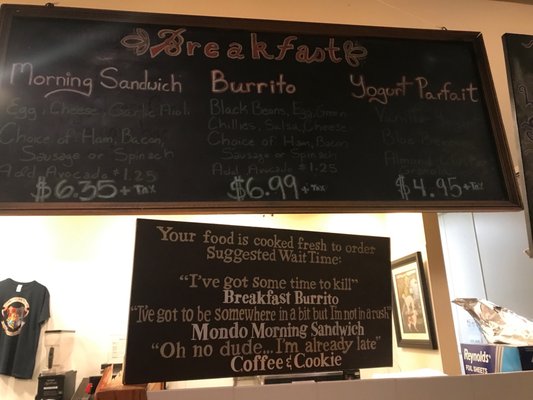 Breakfast
Morning Sandwich
Egg, Cheese, Garlic Aioli
Choice of Ham, Bacon,
Sausage or Spinach
Add Avocado $1.25
$6.35 + Tax
Burrito
Black Beans, Egg, Green
Chillies, Salsa, Cheese
Choice of Ham, Bacon
Sausage or Spinach
Add Avocado $1.25
$6.99 + Tax
Yogurt Parfait
Vanilla Yogurt
Almond
Granola
$4.95 + Tax
Your food is cooked fresh to order
Suggested Wait Time:
"I've got some time to kill"
Breakfast Burrito
"I've got to be somewhere in a bit but I'm not in a rush"
Mondo Morning Sandwich
"Oh no dude...I'm already late"
Coffee & Cookie
Reynolds
FOIL SHEETS